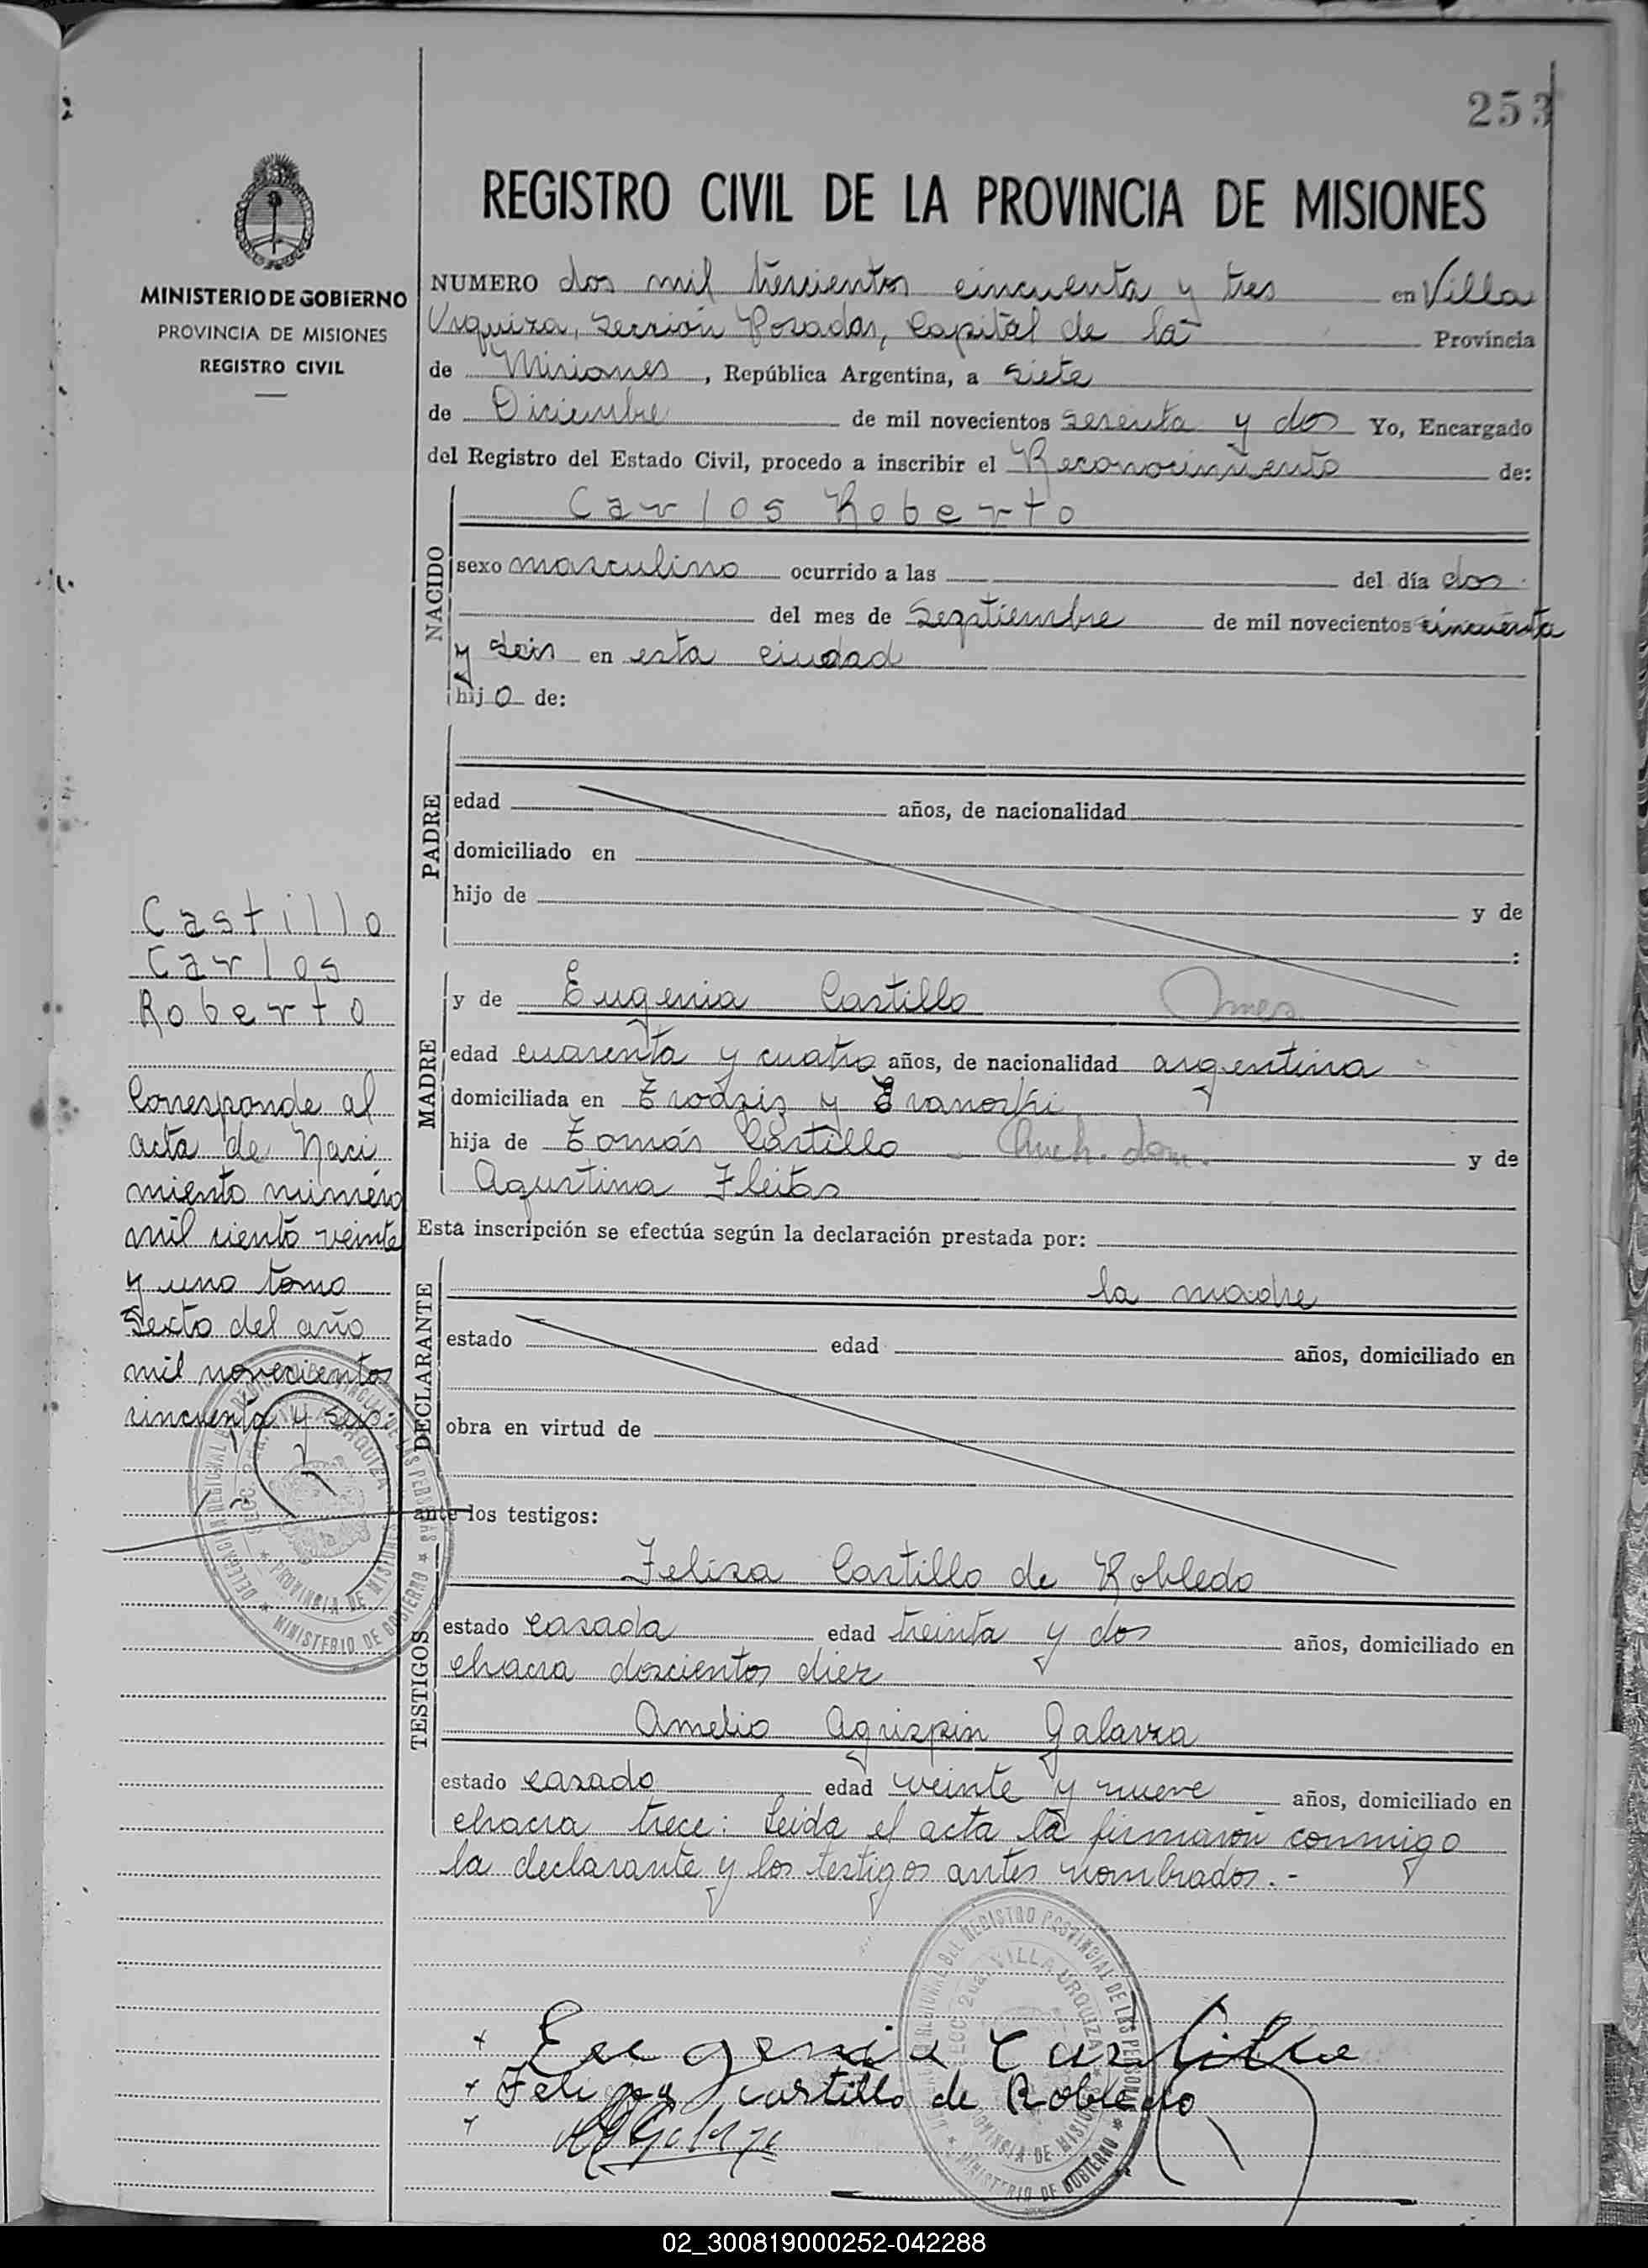 253
REGISTRO CIVIL DE LA PROVINCIA DE MISIONES
MINISTERIO DE GOBIERNO
PROVINCIA DE MISIONES
REGISTRO CIVIL
NUMERO dos mil trescientos cincuenta y tres en Villa
Urquiza, Sección Posadas, Capital de la Provincia
de Misiones, República Argentina, a siete
de Diciembre de mil novecientos sesenta y dos Yo, Encargado
del Registro del Estado Civil, procedo a inscribir el Reconocimiento de:
NACIDO
Carlos Roberto
sexo masculino ocurrido a las del día dos
del mes de Septiembre de mil novecientos cincuenta
y seis en esta ciudad
hijo de:
PADRE
edad años, de nacionalidad
domiciliado en
hijo de y de
:
Castillo
Carlos
Roberto
Corresponde al
acta de Naci
miento número
mil ciento veinte
y uno tomo
Sexto del año
mil novecientos
cincuenta y seis
MADRE
y de Eugenia Castillo
edad cuarenta y cuatro años, de nacionalidad argentina
domiciliada en y
hija de Tomás Castillo y de
Agustina Fleitas
Esta inscripción se efectúa según la declaración prestada por:
DECLARANTE
la madre
estado edad años, domiciliado en
obra en virtud de
ante los testigos:
TESTIGOS
Feliza Castillo de Robledo
estado casada edad treinta y dos años, domiciliado en
chacra doscientos diez
Amelio Agrispin Galarza
estado casado edad veinte y nueve años, domiciliado en
chacra trece: Leida el acta la firmaron conmigo
la declarante y los testigos antes nombrados.-
VILLA URQUIZA
PROVINCIA DE MISIONES
MINISTERIO DE GOBIERNO
REGISTRO PROVINCIAL DE LAS PERSONAS
SECC. 2da. VILLA URQUIZA
PROVINCIA DE MISIONES
MINISTERIO DE GOBIERNO
Eugenia Castillo
Feliza castillo de Robledo
02_300819000252-042288